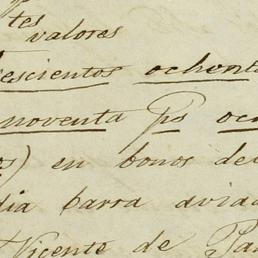 tes
valores
escientos ochent
noventa ps oc
) en bonos del
dia barra aviad
Vicente de Pa